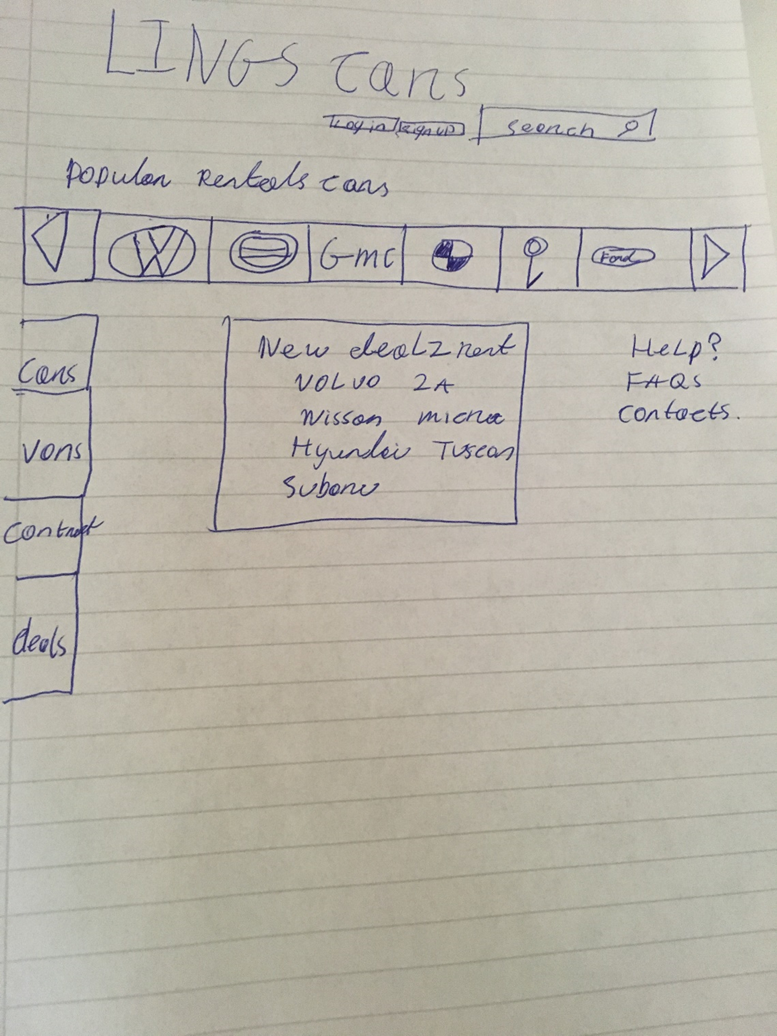 LINGS cars
Login signup search
Popular Rentals cars
W GMC Ford
Cars
Vans
Contract
deals
New dealz rent
VOLVO 2A
Nissan micra
Hyundai Tuscan
Subaru
Help?
FAQS
contacts.